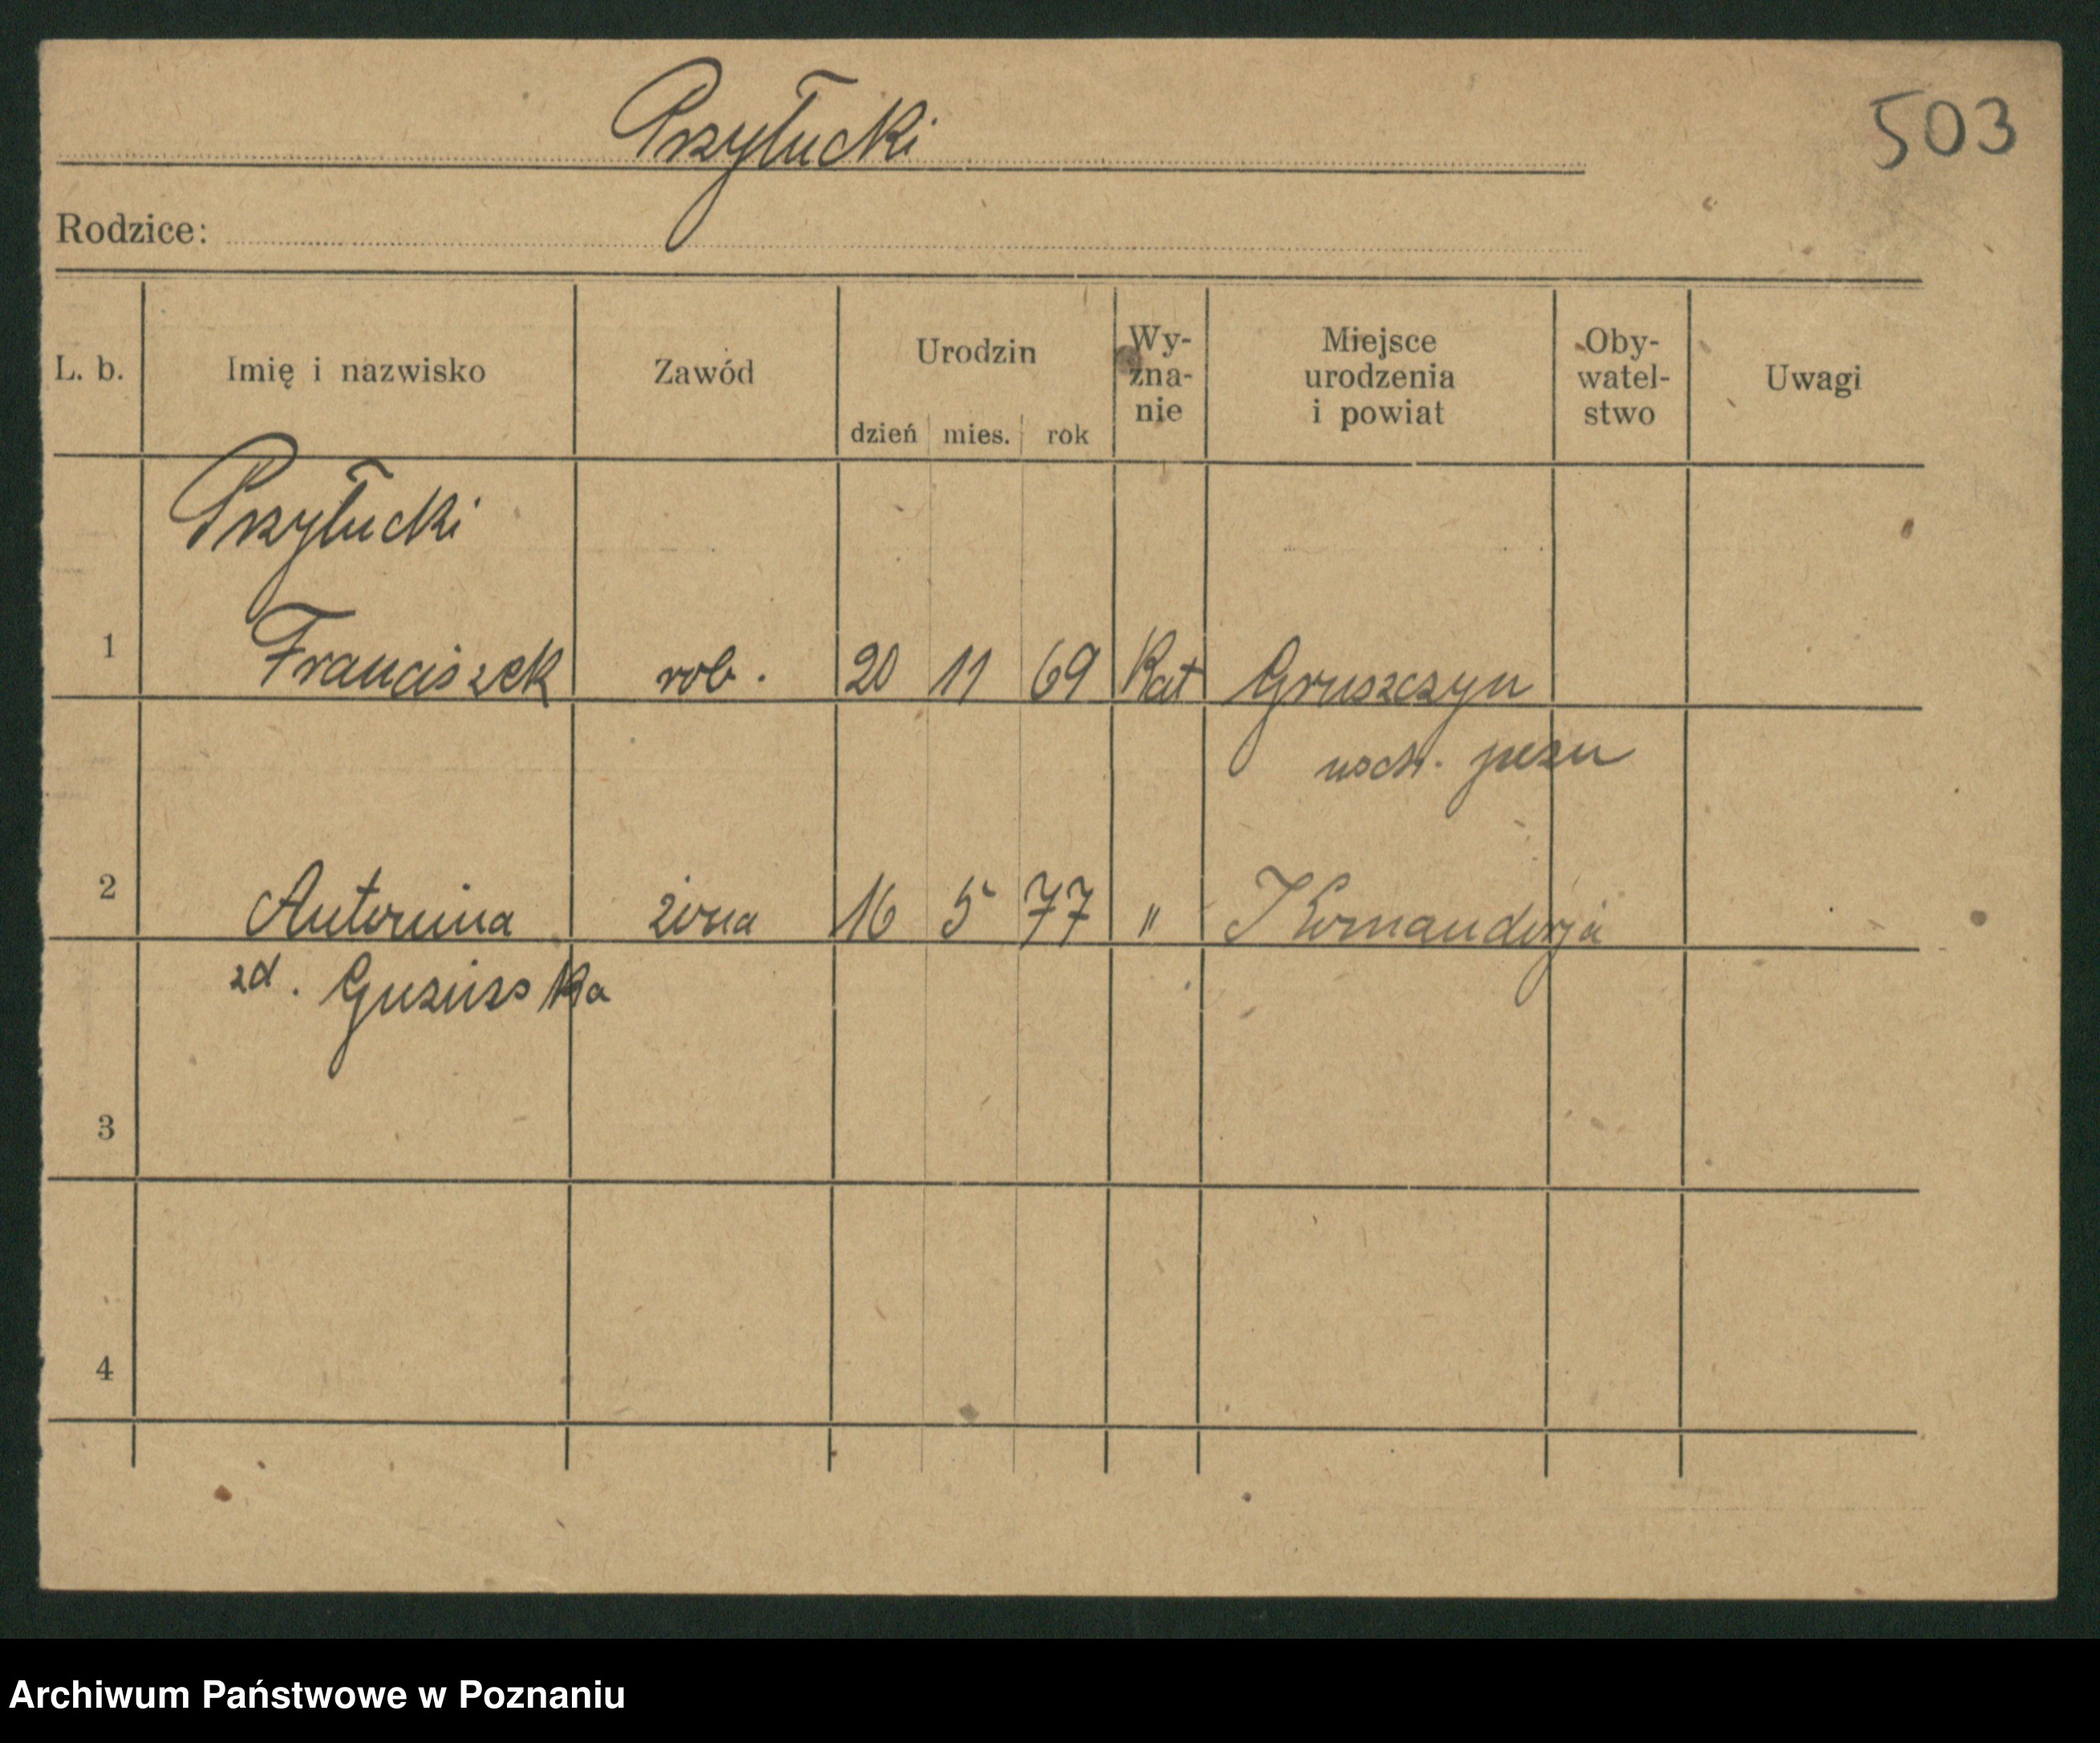 Przyłucki
503
Rodzice:
L. b. Imię i nazwisko Zawód Urodzin dzień mies. rok Wy-zna-nie Miejsce urodzenia i powiat Oby-watel-stwo Uwagi
Przyłucki
1 Franciszek rob. 20 11 69 Kat Gruszczyn
wsch.
2 Antonina żona 16 5 77 " Komanderja
zd.
3
4
Archiwum Państwowe w Poznaniu